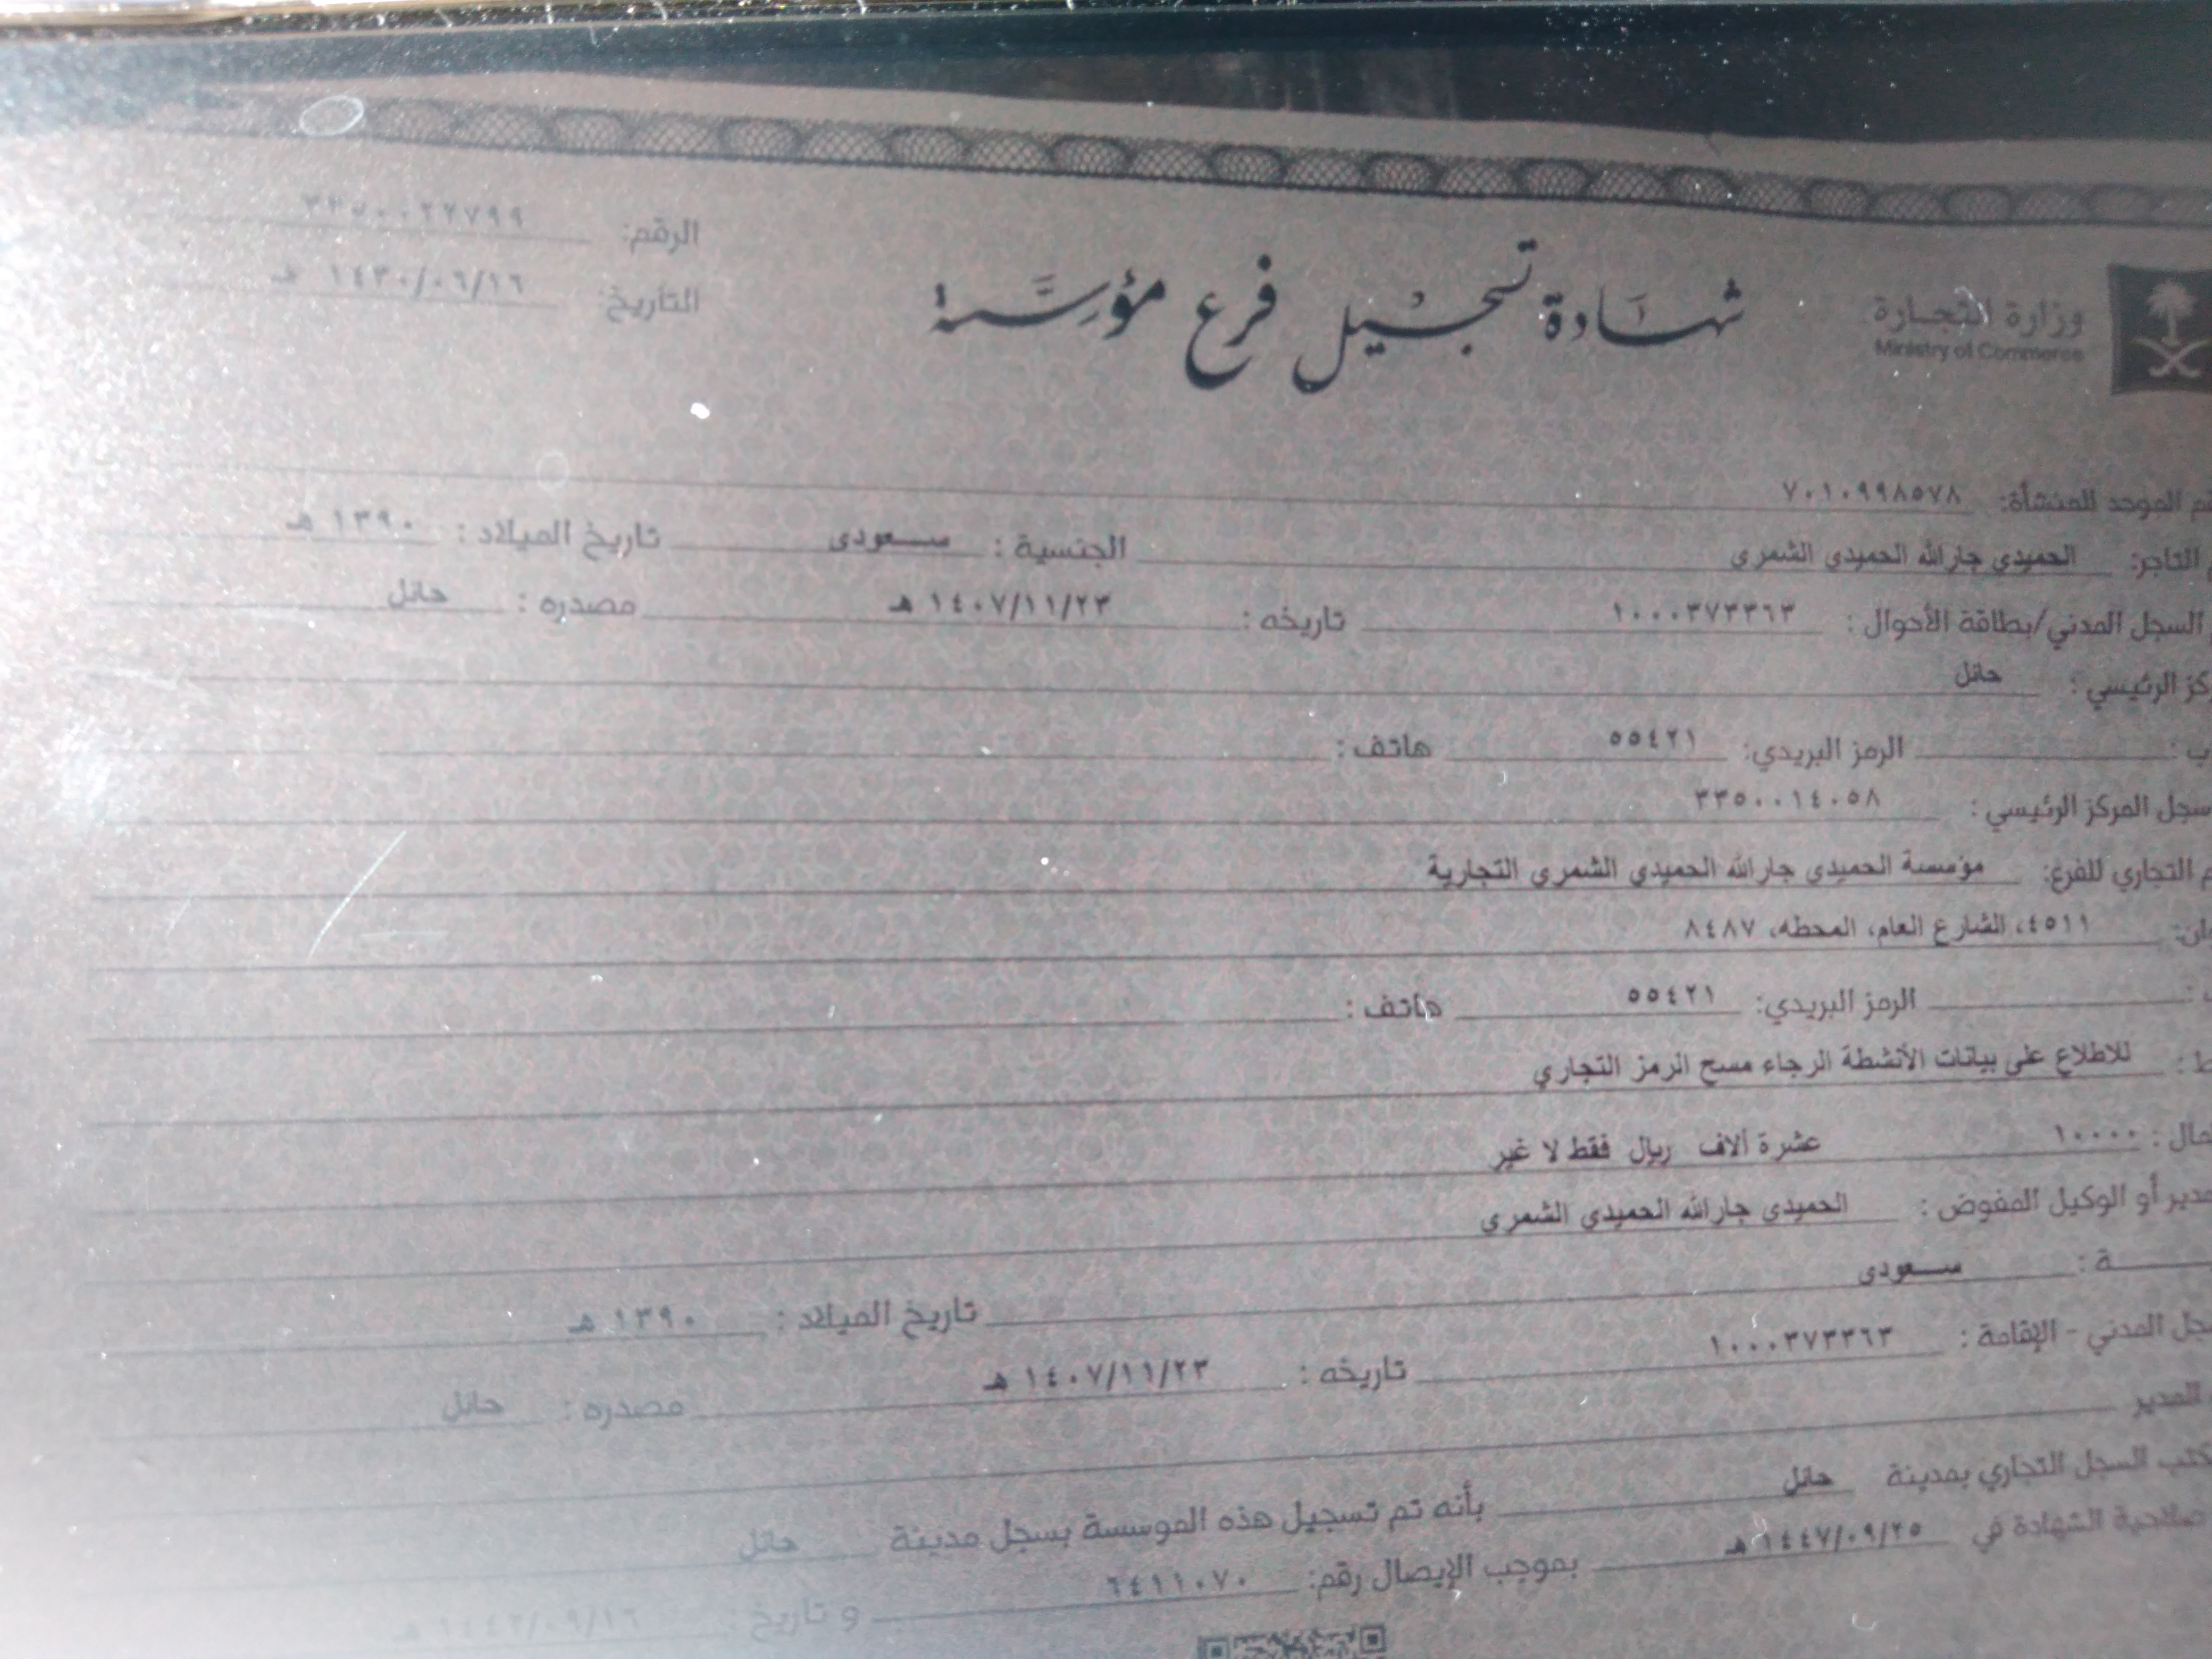 الرقم: ٣٣٥٠٠٢٢٧٩٩
التاريخ: ١٤٣٠/٠٦/١٦ هـ
وزارة التجارة
Ministry of Commerce
شهادة تسجيل فرع مؤسسة
الموحد للمنشأة: ٧٠١٠٩٩٨٥٧٨
التاجر: الحميدي جارالله الحميدي الشمري الجنسية : سعودى تاريخ الميلاد : ١٣٩٠ هـ
السجل المدني/بطاقة الأحوال : ١٠٠٠٣٧٣٣٦٣ تاريخه : ١٤٠٧/١١/٢٣ هـ مصدره : حائل
الرئيسي : حائل
الرمز البريدي: ٥٥٤٢١ هاتف :
سجل المركز الرئيسي : ٣٣٥٠٠١٤٠٥٨
التجاري للفرع: مؤسسة الحميدي جارالله الحميدي الشمري التجارية
٤٥١١، الشارع العام، المحطه، ٨٤٨٧
الرمز البريدي: ٥٥٤٢١ هاتف :
للاطلاع على بيانات الأنشطة الرجاء مسح الرمز التجاري
١٠٠٠٠ عشرة ألاف ريال فقط لا غير
أو الوكيل المفوض : الحميدي جارالله الحميدي الشمرى
سعودى تاريخ الميلاد : ١٣٩٠ هـ
المدني - الإقامة : ١٠٠٠٣٧٣٣٦٣ تاريخه : ١٤٠٧/١١/٢٣ هـ مصدره : حائل
المدير
السجل التجاري بمدينة حائل بأنه تم تسجيل هذه الموسسة بسجل مدينة حائل
صلاحية الشهادة في ١٤٤٧/٠٩/٢٥ هـ بموجب الإيصال رقم: ٦٤١١٠٧٠ و تاريخ : ١٤٤٢/٠٩/١٦ هـ